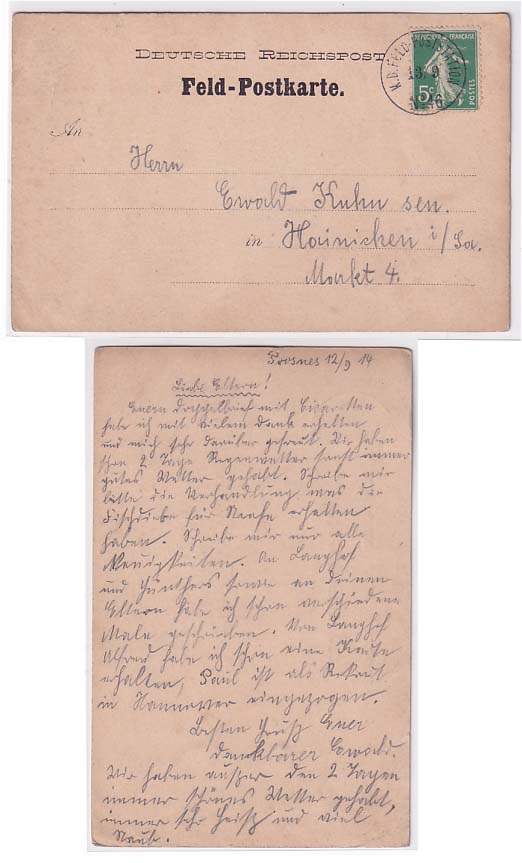 DEUTSCHE REICHSPOST
Feld-Postkarte.
RÉPUBLIQUE FRANÇAISE
5c
POSTES
K.D. FELD-POSTSTATION
13/9
Nr 46
An
Herrn
Ewald Kuhn sen.
in Hainichen i/Sa.
Markt 4.
Prosnes 12/9 14
Liebe Eltern!
Euern Doppelbrief mit Cigaretten
habe ich mit vielem Dank erhalten
und mich sehr darüber gefreut. Wir haben
schon 2 Tage Regenwetter sonst immer
gutes Wetter gehabt. Schreibe mir
bitte die Verhandlung was die
Fischdiebe für Strafe erhalten
haben. Schreibe mir nur alle
Neuigkeiten. An Langhof
und Günthers sowie an deinen
Eltern habe ich schon verschiedene
Male geschrieben. Von Langhof
Alfred habe ich schon eine Karte
erhalten, Paul ist als Rekrut
in Hannover eingezogen.
Besten Gruß Euer
dankbarer Ewald.
Wir haben außer den 2 Tagen
immer schönes Wetter gehabt,
immer sehr heiß und viel
Staub.